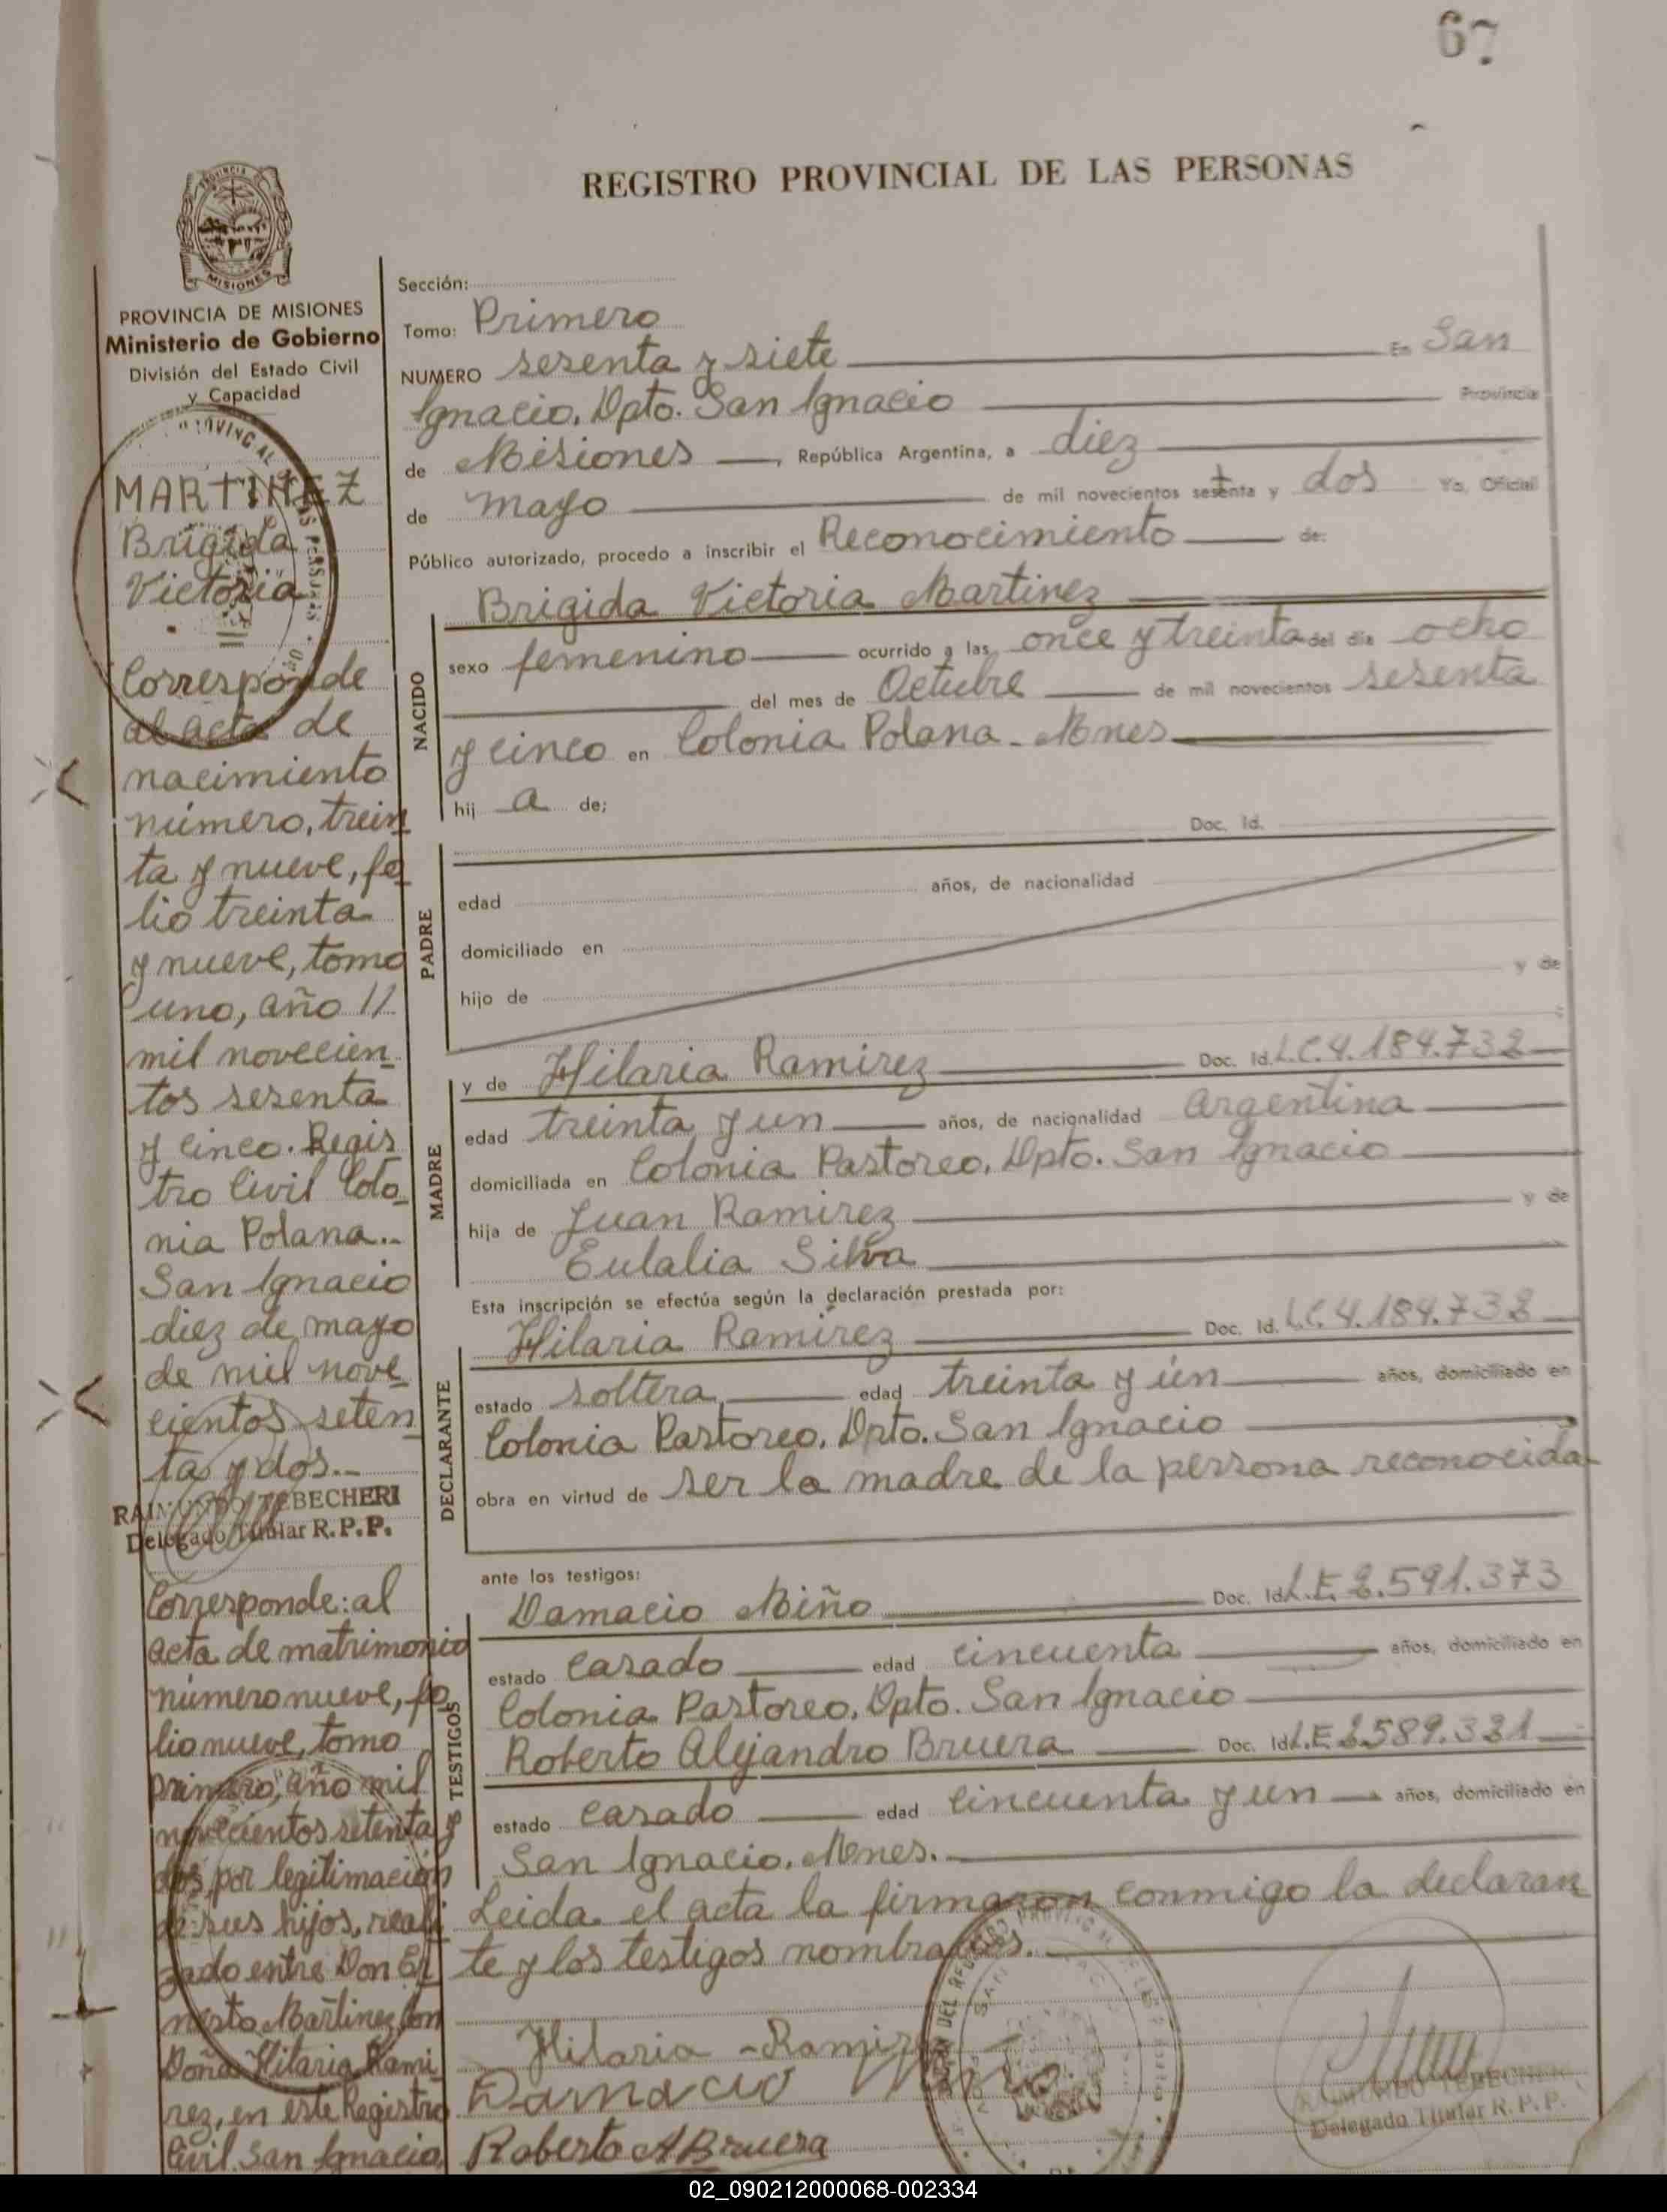 67
REGISTRO PROVINCIAL DE LAS PERSONAS
PROVINCIA DE MISIONES
Ministerio de Gobierno
División del Estado Civil
y Capacidad
MARTINEZ
Brigida
Victoria
Corresponde
al acta de
nacimiento
número, trein
ta y nueve, fo
lio treinta
y nueve, tomo
uno, año //
mil novecien
tos sesenta
y cinco. Regis
tro Civil Colo
nia Polana..
San Ignacio
diez de mayo
de mil nove
cientos seten
ta y dos..
RAIMUNDO TEBECHERI
Delegado Titular R. P. P.
Corresponde: al
acta de matrimonio
número nueve, fo
lio nueve, tomo
primero, año mil
novecientos setenta y
dos, por legitimación
de sus hijos, reali
zado entre Don Er
nesto Martinez con
Doña Hilaria Rami
rez, en este Registro
Civil San Ignacio,
Sección:
Tomo: Primero
NUMERO sesenta y siete En San
Ignacio, Dpto. San Ignacio Provincia
de Misiones, República Argentina, a diez
de mayo de mil novecientos setenta y dos Yo, Oficial
Público autorizado, procedo a inscribir el Reconocimiento de:
Brigida Victoria Martinez
NACIDO
sexo femenino ocurrido a las once y treinta del día ocho
del mes de Octubre de mil novecientos sesenta
y cinco en Colonia Polana - Mnes
hij a de;
PADRE
Doc. Id.
edad años, de nacionalidad
domiciliado en
hijo de y de
MADRE
y de Hilaria Ramirez Doc. Id. L.C. 4.184.732
edad treinta y un años, de nacionalidad argentina
domiciliada en Colonia Pastoreo, Dpto. San Ignacio
hija de Juan Ramirez y de
Eulalia Silva
Esta inscripción se efectúa según la declaración prestada por:
DECLARANTE
Hilaria Ramirez Doc. Id. L.C. 4.184.732
estado soltera edad treinta y ún años, domiciliado en
Colonia Pastoreo, Dpto. San Ignacio
obra en virtud de ser la madre de la persona reconocida
ante los testigos:
TESTIGOS
Damacio Miño Doc. Id. L.E. 2.591.373
estado casado edad cincuenta años, domiciliado en
Colonia Pastoreo, Dpto. San Ignacio
Roberto Alejandro Bruera Doc. Id. L.E. 2.589.321
estado casado edad cincuenta y un años, domiciliado en
San Ignacio, Mnes.
Leida el acta la firmaron conmigo la declaran
te y los testigos nombrados.
Hilaria - Ramirez
Damacio Miño
Roberto A Bruera
RAIMUNDO TEBECHERI
Delegado Titular R. P. P.
02_090212000068-002334